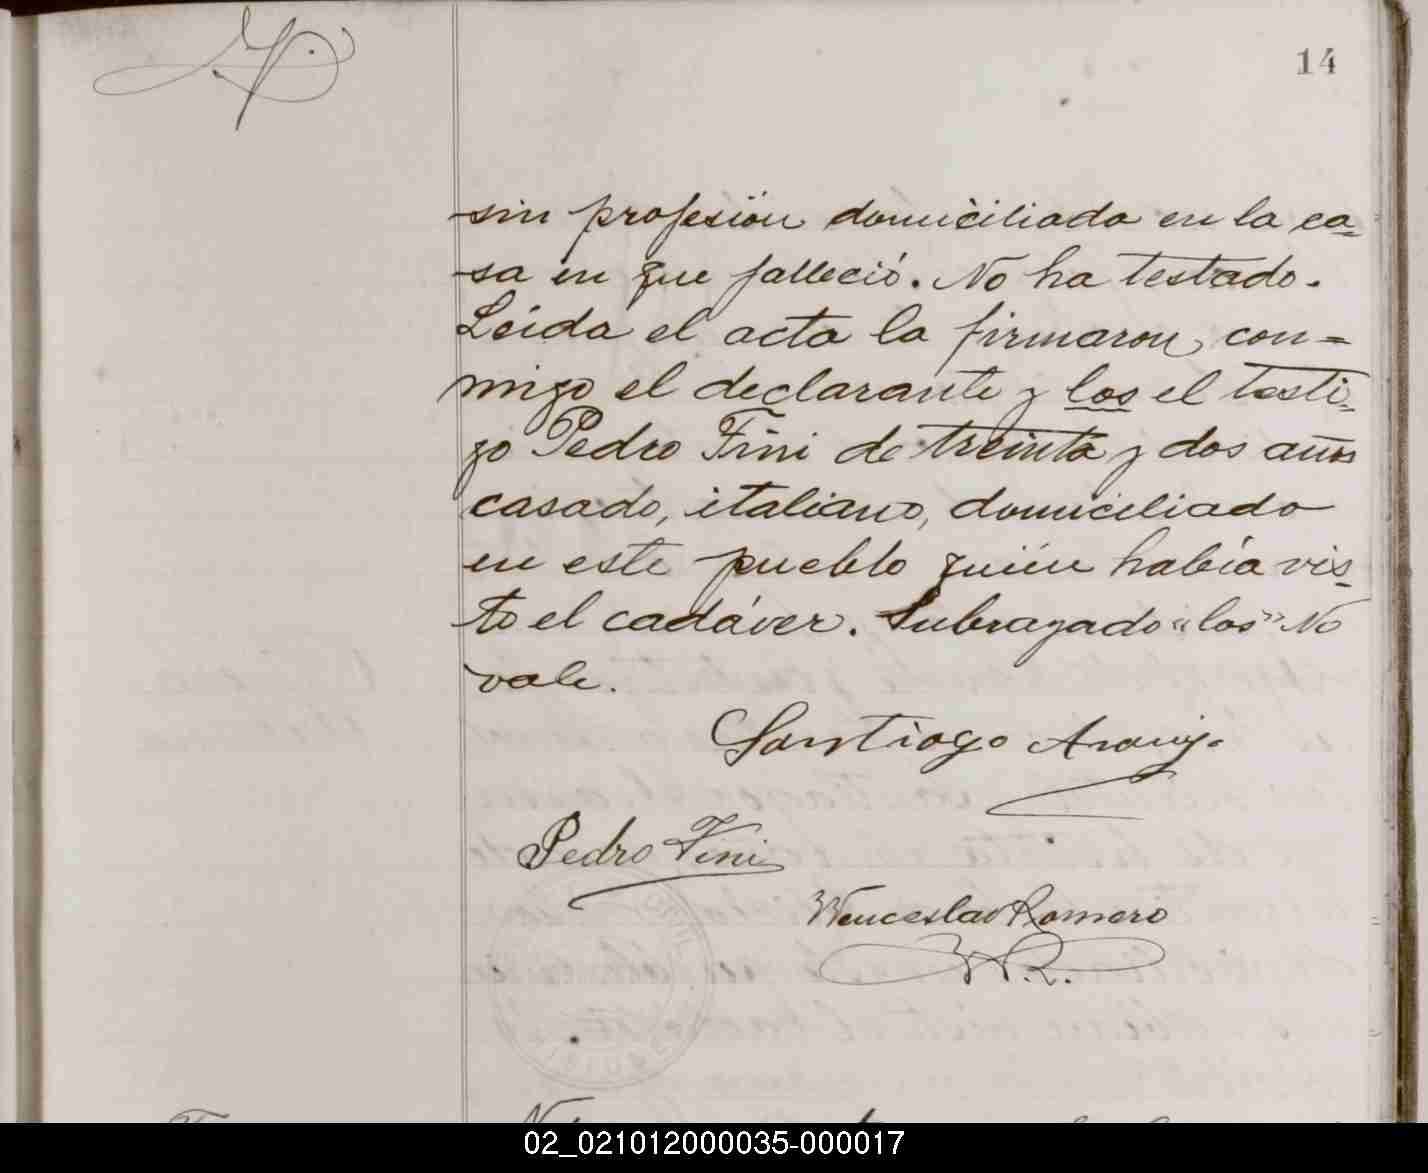 14
sin profesión domiciliado en la ca=
sa en que falleció. No ha testado.
Leída el acta la firmaron con=
migo el declarante y los el testi=
go Pedro Fini de treinta y dos años
casado, italiano, domiciliado
en este pueblo quién había vis=
to el cadáver. Subrayado "los" No
vale.
Santiago
Pedro Fini
Wenceslao Romero
W.R.
02_021012000035-000017